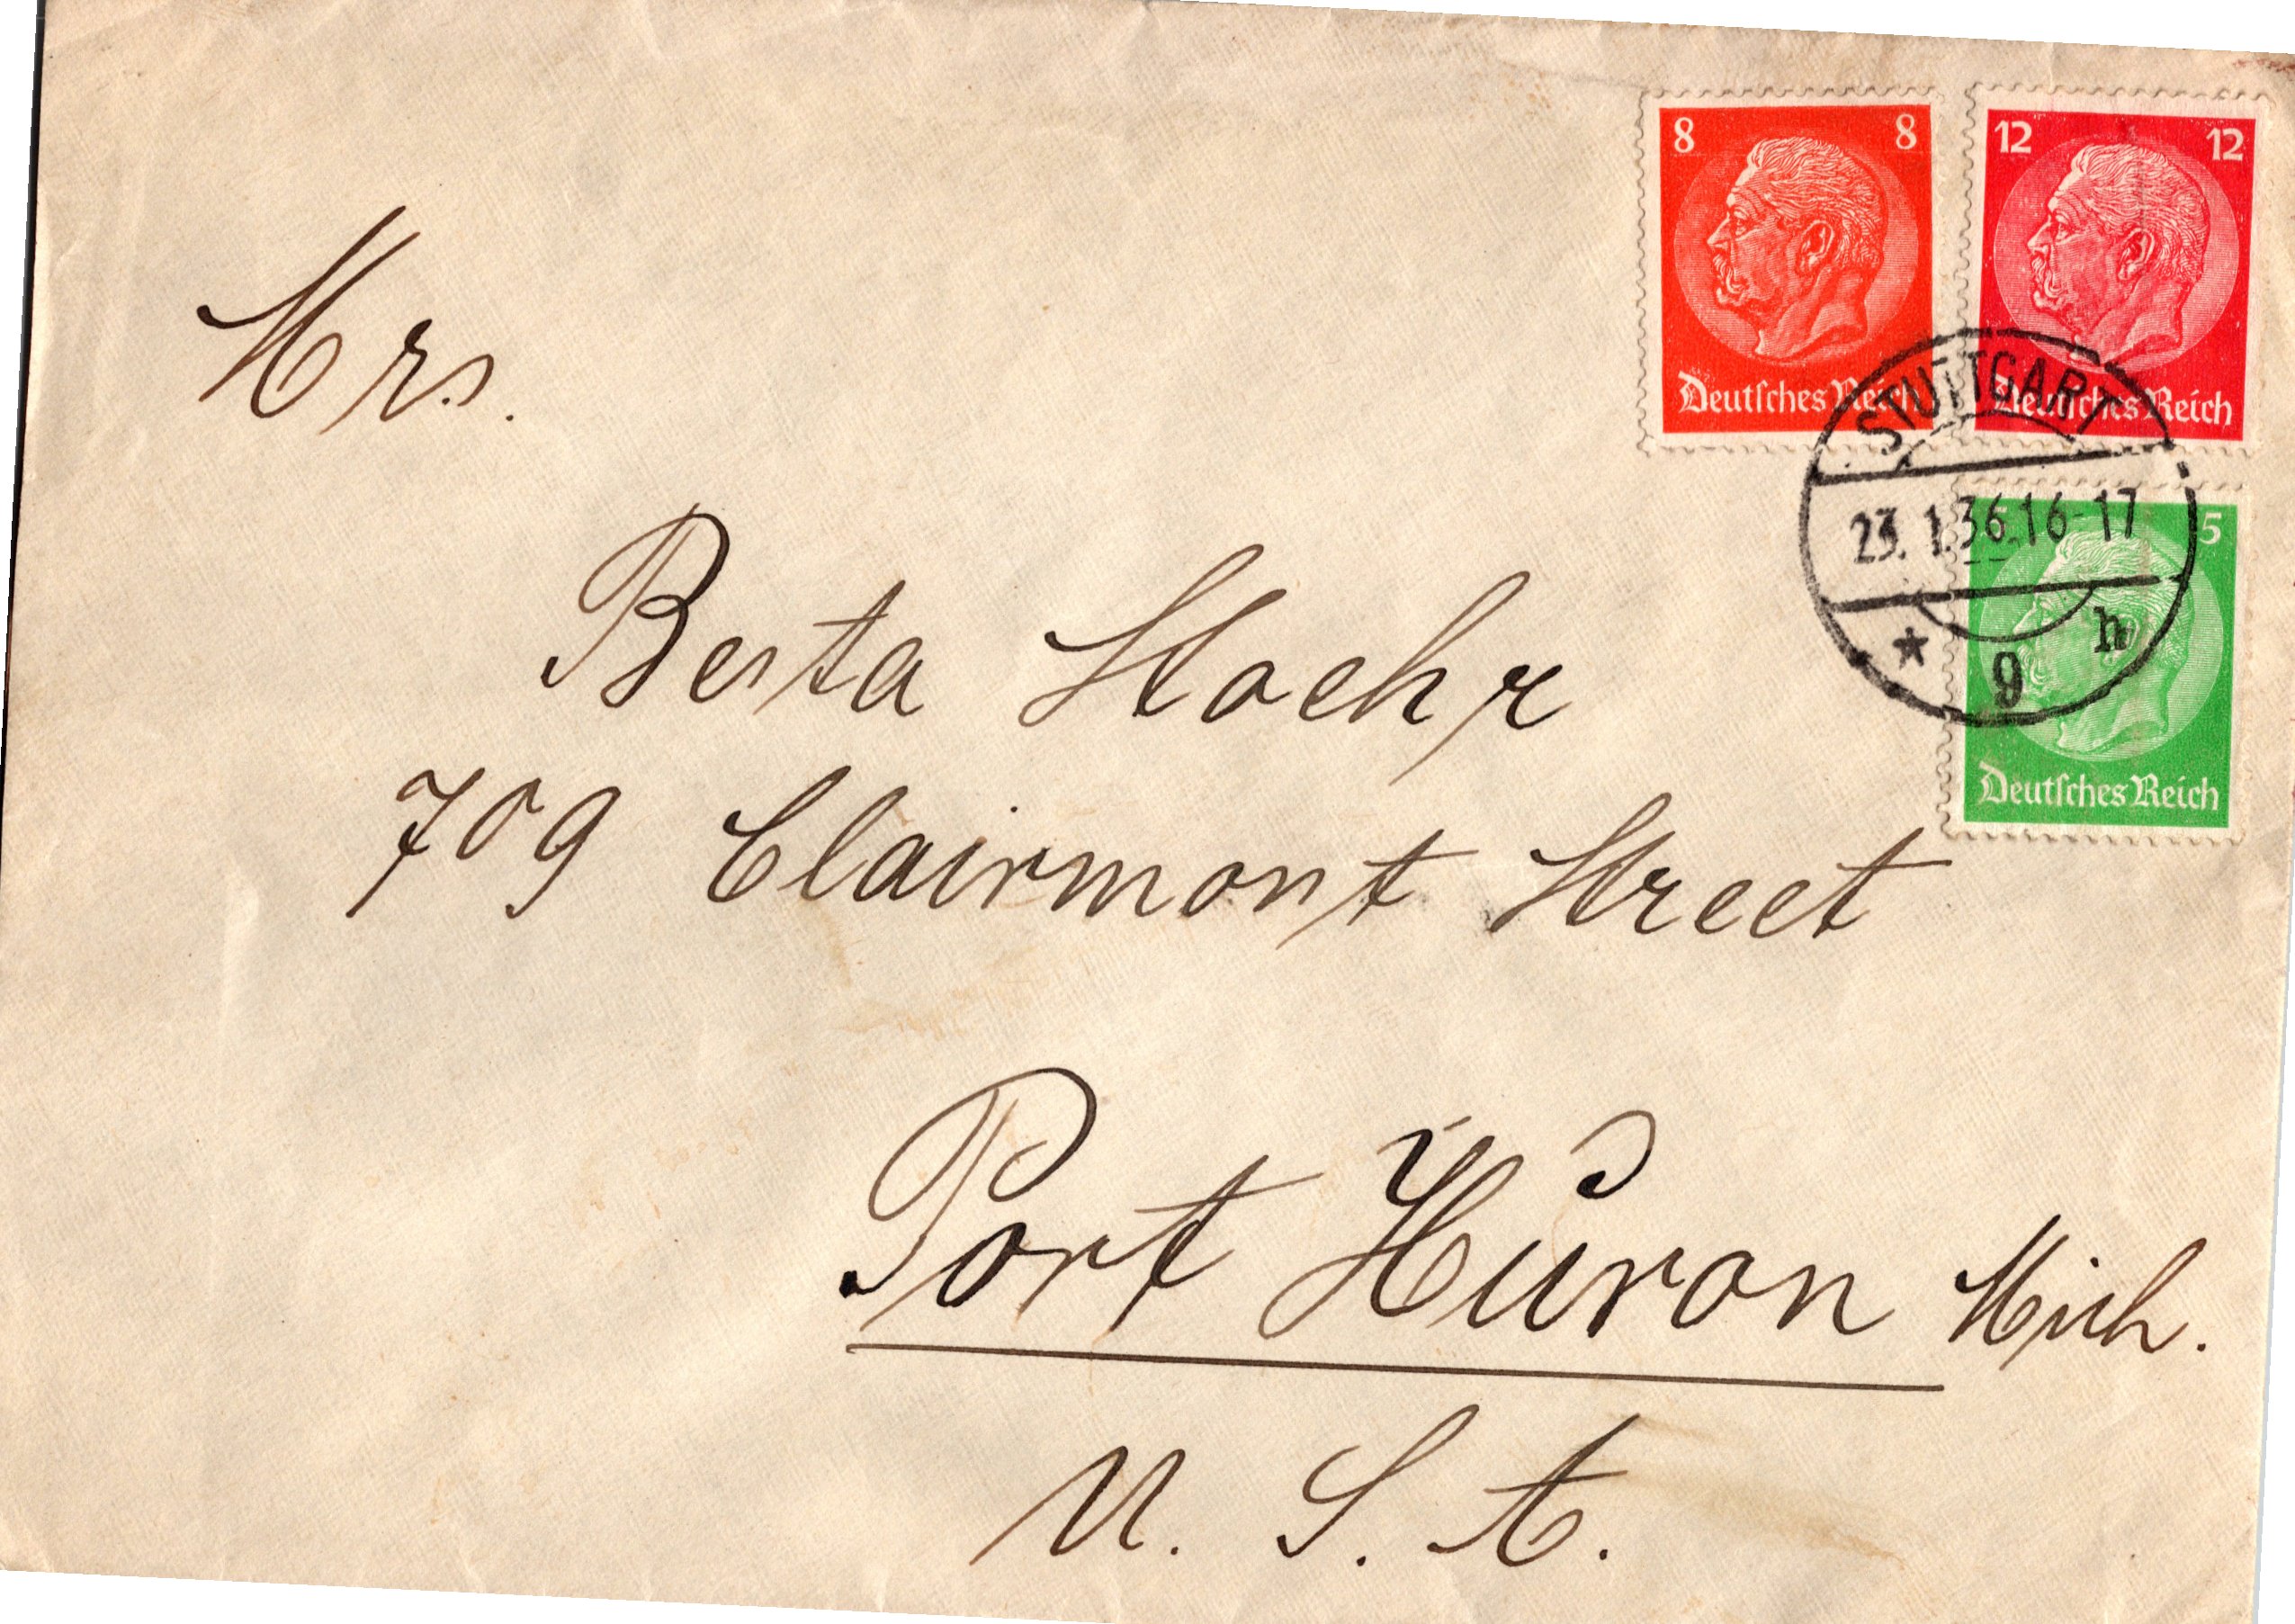 8 8
Deutsches Reich
12 12
Deutsches Reich
STUTTGART
23.1.36.16-17
* g h
5
Deutsches Reich
Mrs.
Berta Stoehr
709 Clairmont Street
Port Huron Mich.
U. S. A.